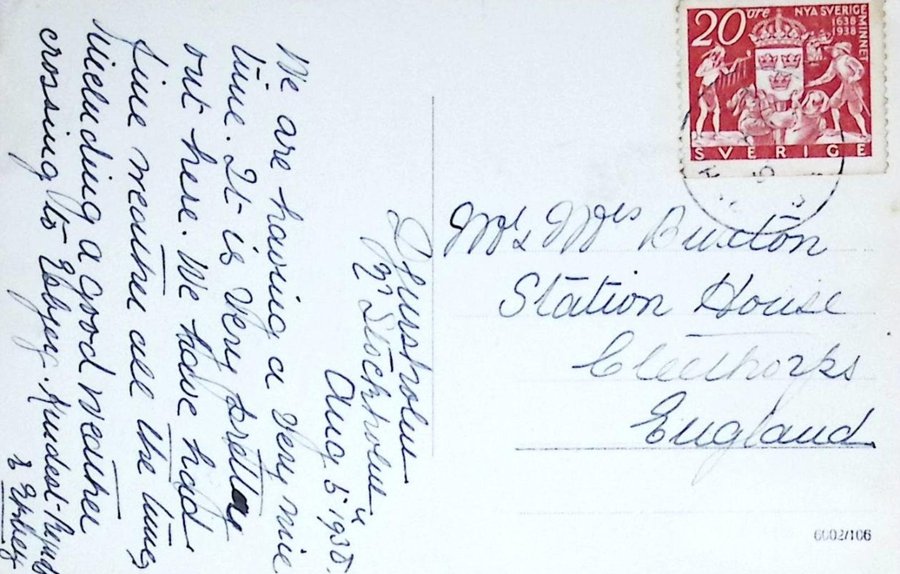 Djursholm
Nr Stockholm
Aug. 5th 1938.
We are having a very nice
time. It is very pretty
out here. We have had
fine weather all the time
including a good weather
crossing to Esbjerg. Kindest
&
Mr & Mrs Buxton
Station House
Cleethorps
England
20 öre NYA SVERIGE
1638
1938
MINNET
SVERIGE
6002/106